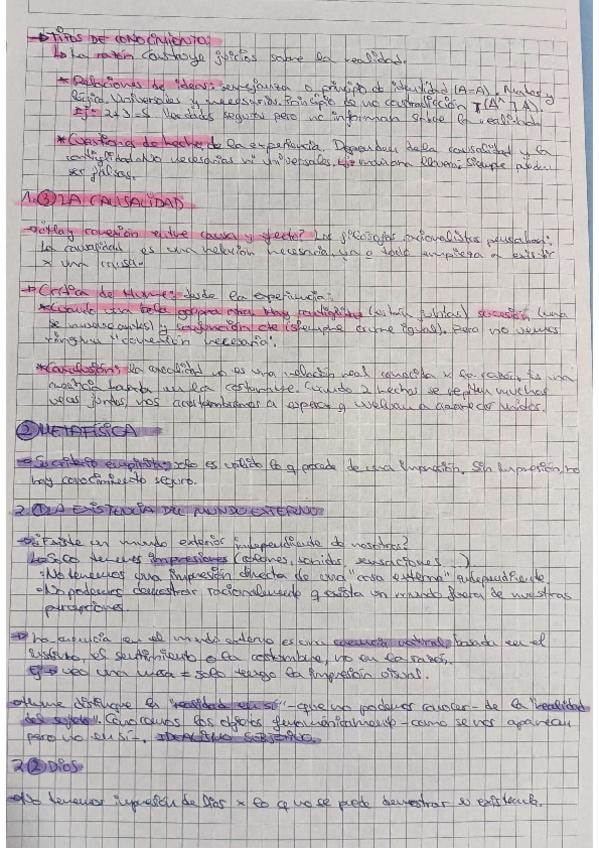 → TIPOS DE CONOCIMIENTO:
↳ La razón construye juicios sobre la realidad.
* Relaciones de ideas: semejanza o principio de identidad (A=A). Mates y
lógica. Universales y necesarios. Principio de no contradicción ¬(A^¬A).
Ej: 2+3=5 Verdades seguras pero no informan sobre la realidad.
* Cuestiones de hecho: de la experiencia. Dependen de la causalidad y la
contigüidad. No necesarias ni universales. Ej: mañana lloverá. Siempre pueden
ser falsas.
1.③ LA CAUSALIDAD
→ ¿Hay conexión entre causa y efecto? Los filósofos racionalistas pensaban:
la causalidad es una relación necesaria, ya q todo empieza a existir
x una causa.
→ Crítica de Hume: desde la experiencia:
* Cuando una bola golpea otra. Hay contigüidad (están juntas) sucesión (una
se mueve antes) y conjunción cte (siempre ocurre igual). Pero no vemos
ninguna "conexión necesaria".
* Conclusión: la causalidad no es una relación real conocida x la razón. Es una
creencia basada en la costumbre. Cuando 2 hechos se repiten muchas
veces juntos, nos acostumbramos a esperar q vuelvan a aparecer unidos.
② METAFÍSICA
→ Su criterio empirista: solo es válido lo q procede de una impresión. Sin impresión, no
hay conocimiento seguro.
2.① LA EXISTENCIA DEL MUNDO EXTERNO
→ ¿Existe un mundo exterior independiente de nosotros?
↳ Solo tenemos impresiones (colores, sonidos, sensaciones...)
· No tenemos una impresión directa de una "cosa externa" independiente.
· No podemos demostrar racionalmente q exista un mundo fuera de nuestras
percepciones.
→ La creencia en el mundo externo es una creencia natural, basada en el
instinto, el sentimiento o la costumbre, no en la razón.
Ej → veo una mesa = solo tengo la impresión visual.
→ Hume distingue la "realidad en sí" -que no podemos conocer- de la "realidad
del sujeto". Conocemos los objetos fenoménicamente -como se nos aparecen
pero no en sí-. IDEALISMO SUBJETIVO.
2.② DIOS
→ No tenemos impresión de Dios x lo q no se puede demostrar su existencia.